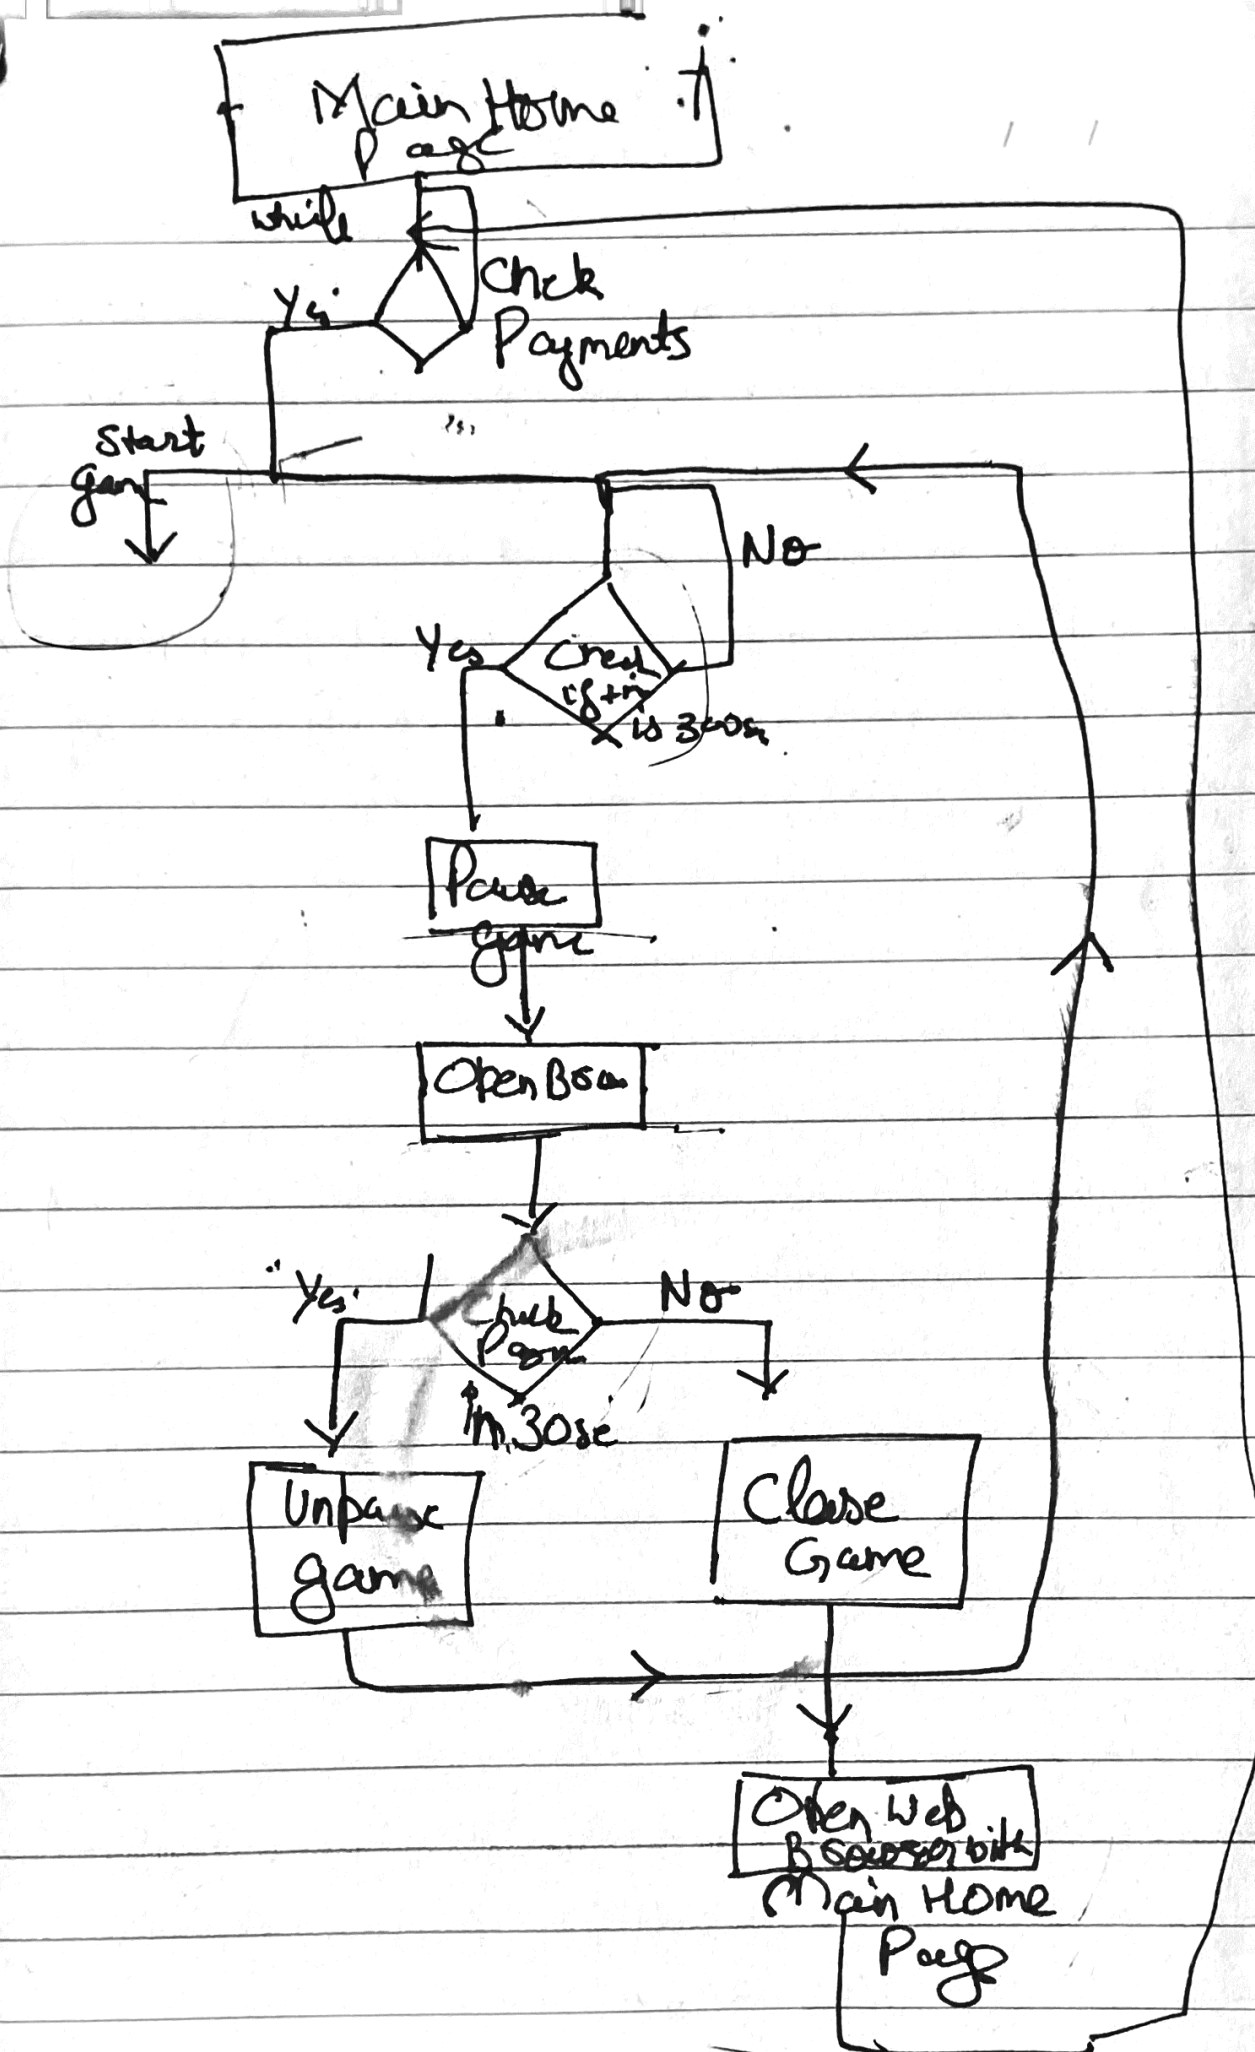 Main Home
Page
while
Chck
Payments
Yes
Start
gam
No
Yes
Check
if tim
is 300se
Pause
game
Open Brow
Yes
No
Check
Paym
in 30se
Unpause
game
Close
Game
Open Web
Browser with
Main Home
Page